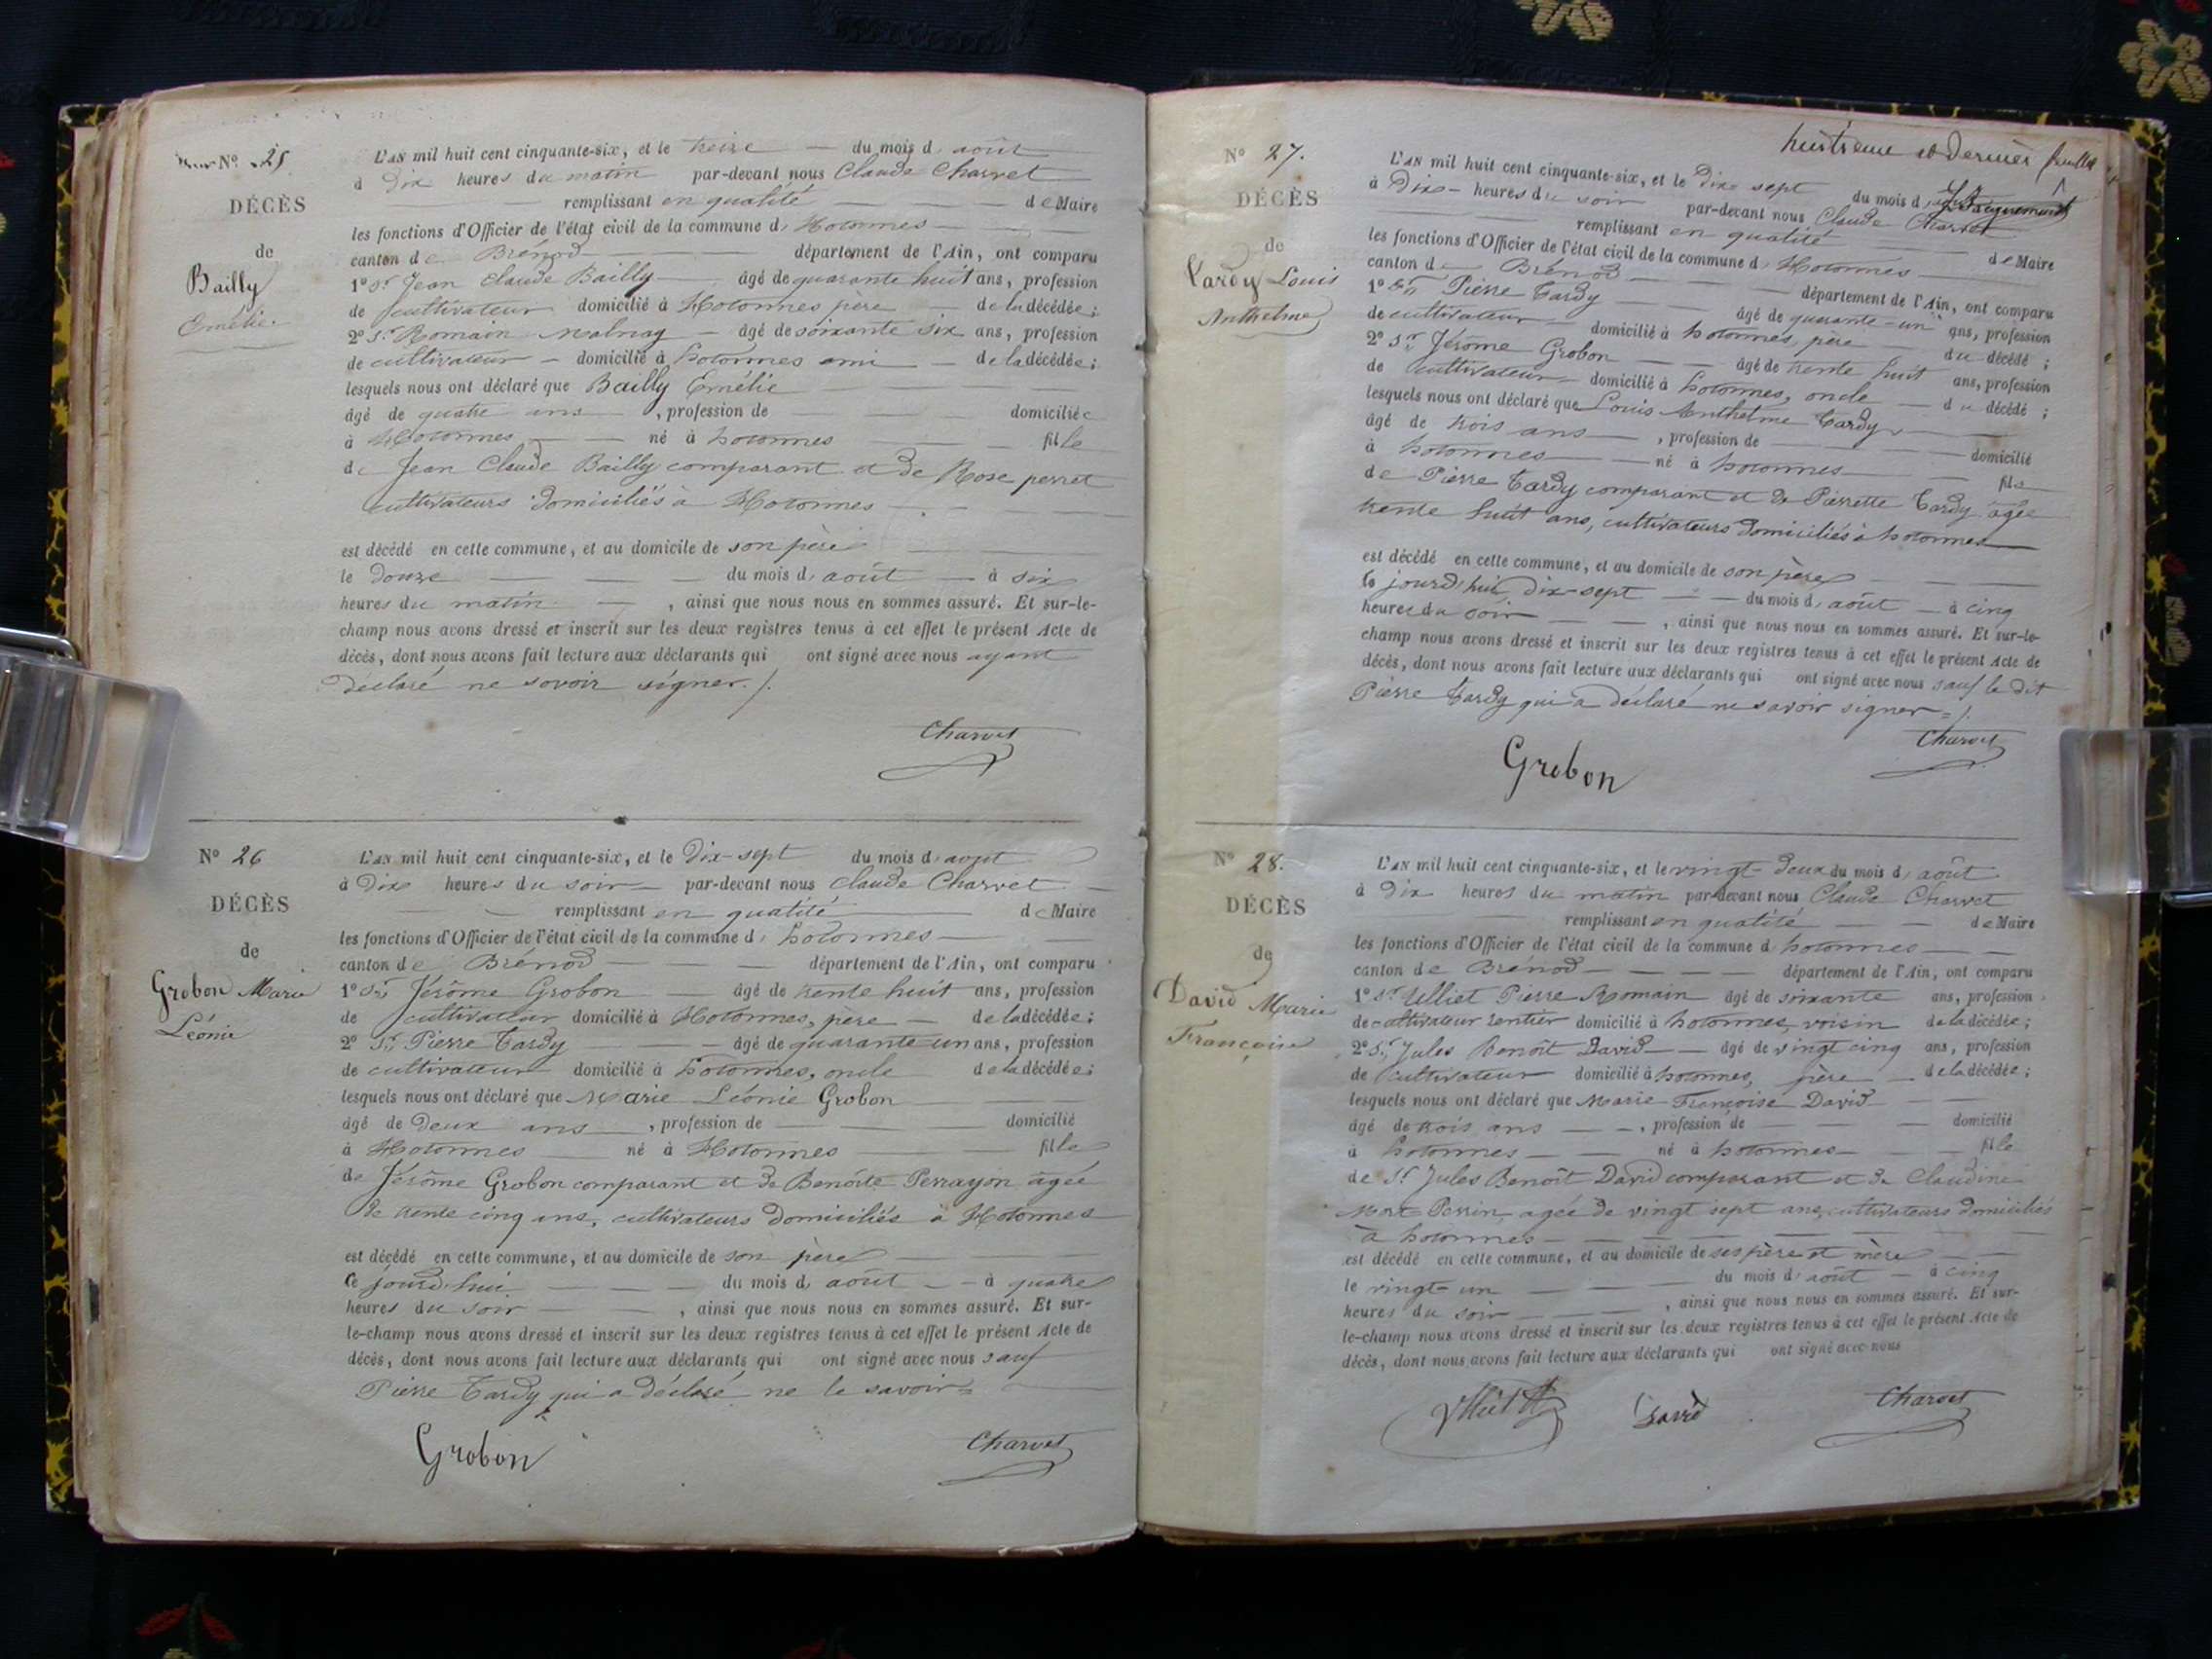 N° 25
DÉCÈS
de
Bailly
Emélie.
L'AN mil huit cent cinquante-six, et le treize du mois d'août
à Dix heures du matin par-devant nous Claude Charvet
remplissant en qualité de Maire
les fonctions d'Officier de l'état civil de la commune d' Hotonnes
canton de Brénod département de l'Ain, ont comparu
1° Sr Jean Claude Bailly âgé de quarante huit ans, profession
de cultivateur domicilié à Hotonnes père de la décédée ;
2° Sr Romain âgé de soixante six ans, profession
de cultivateur domicilié à hotonnes ami de la décédée ;
lesquels nous ont déclaré que Bailly Emélie
âgé de quatre ans , profession de domiciliée
à Hotonnes né à hotonnes fille
de Jean Claude Bailly comparant et de Rose perret
cultivateurs domiciliés à Hotonnes
est décédé en cette commune, et au domicile de son père
le Douze du mois d'août à six
heures du matin , ainsi que nous nous en sommes assuré. Et sur-le-
champ nous avons dressé et inscrit sur les deux registres tenus à cet effet le présent Acte de
décès, dont nous avons fait lecture aux déclarants qui ont signé avec nous ayant
déclaré ne savoir signer ./.
Charvet
N° 26
DÉCÈS
de
Grobon Marie
Léonie
L'AN mil huit cent cinquante-six, et le Dix-sept du mois d'août
à Dix heures du soir par-devant nous Claude Charvet
remplissant en qualité de Maire
les fonctions d'Officier de l'état civil de la commune d' hotonnes
canton de Brénod département de l'Ain, ont comparu
1° Sr, Jérôme Grobon âgé de trente huit ans, profession
de cultivateur domicilié à Hotonnes, père de la décédée ;
2° Sr, Pierre Tardy âgé de quarante un ans, profession
de cultivateur domicilié à hotonnes, oncle de la décédée ;
lesquels nous ont déclaré que Marie Léonie Grobon
âgé de Deux ans , profession de domicilié
à Hotonnes né à Hotonnes fille
de Jérôme Grobon comparant et de Benoite Perrayon âgée
de trente cinq ans, cultivateurs domiciliés à Hotonnes
est décédé en cette commune, et au domicile de son père
ce jourd'hui du mois d'août à quatre
heures du soir , ainsi que nous nous en sommes assuré. Et sur-
le-champ nous avons dressé et inscrit sur les deux registres tenus à cet effet le présent Acte de
décès, dont nous avons fait lecture aux déclarants qui ont signé avec nous sauf
Pierre Tardy qui a déclaré ne le savoir =
Grobon Charvet
huitième et dernier feuillet
N° 27.
DÉCÈS
de
Tardy Louis
Anthelme
L'AN mil huit cent cinquante-six, et le Dix sept du mois d'
à Dix heures du soir par-devant nous Claude Charvet
remplissant en qualité de Maire
les fonctions d'Officier de l'état civil de la commune d' Hotonnes
canton de Brénod département de l'Ain, ont comparu
1° Sr, Pierre Tardy âgé de quarante-un ans, profession
de cultivateur domicilié à hotonnes, père du décédé ;
2° Sr, Jérôme Grobon âgé de trente huit ans, profession
de cultivateur domicilié à hotonnes, oncle du décédé ;
lesquels nous ont déclaré que Louis Anthelme Tardy
âgé de trois ans , profession de domicilié
à hotonnes né à hotonnes fils
de Pierre Tardy comparant et de Pierrette Tardy âgée
trente huit ans, cultivateurs domiciliés à hotonnes
est décédé en cette commune, et au domicile de son père
le jourd'hui Dix-sept du mois d'août à cinq
heures du soir , ainsi que nous nous en sommes assuré. Et sur-le-
champ nous avons dressé et inscrit sur les deux registres tenus à cet effet le présent Acte de
décès, dont nous avons fait lecture aux déclarants qui ont signé avec nous sauf le dit
Pierre Tardy qui a déclaré ne savoir signer =/.
Grobon Charvet
N° 28.
DÉCÈS
de
David Marie
Françoise
L'AN mil huit cent cinquante-six, et le vingt-deux du mois d'août
à Dix heures du matin par-devant nous Claude Charvet
remplissant en qualité de Maire
les fonctions d'Officier de l'état civil de la commune d' hotonnes
canton de Brénod département de l'Ain, ont comparu
1° Sr Ulliet Pierre Romain âgé de soixante ans, profession
de cultivateur rentier domicilié à hotonnes, voisin de la décédée ;
2° Sr, Jules Benoît David âgé de vingt cinq ans, profession
de cultivateur domicilié à hotonnes, père de la décédée ;
lesquels nous ont déclaré que Marie Françoise David
âgé de trois ans , profession de domicilié
à hotonnes né à hotonnes fille
de Sr Jules Benoît David comparant et de Claudine
Perrin, agée de vingt sept ans, cultivateurs domiciliés
à hotonnes
est décédé en cette commune, et au domicile de ses père et mère
le vingt-un du mois d'août à cinq
heures du soir , ainsi que nous nous en sommes assuré. Et sur-
le-champ nous avons dressé et inscrit sur les deux registres tenus à cet effet le présent Acte de
décès, dont nous avons fait lecture aux déclarants qui ont signé avec nous
David Charvet